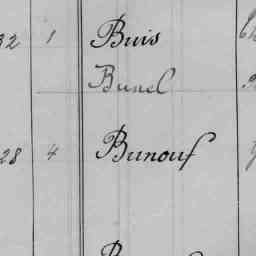 32 1 Buis
Bunel
28 4 Bunouf